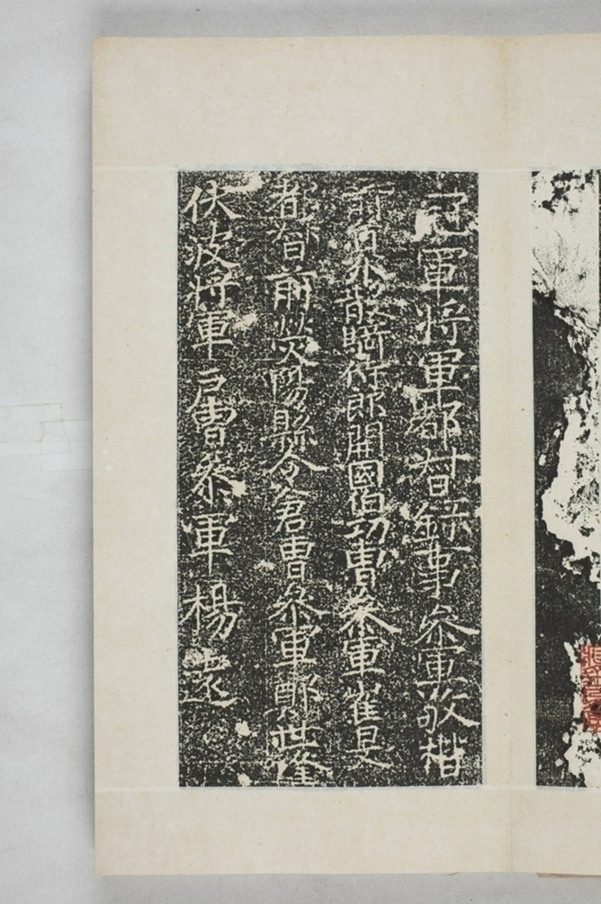 冠軍將軍都督錄事參軍敬楷
前員外散騎侍郎開國伯功曹參軍崔
都督前滎陽縣令倉曹參軍鄭世隆
伏波將軍戶曹參軍楊遠